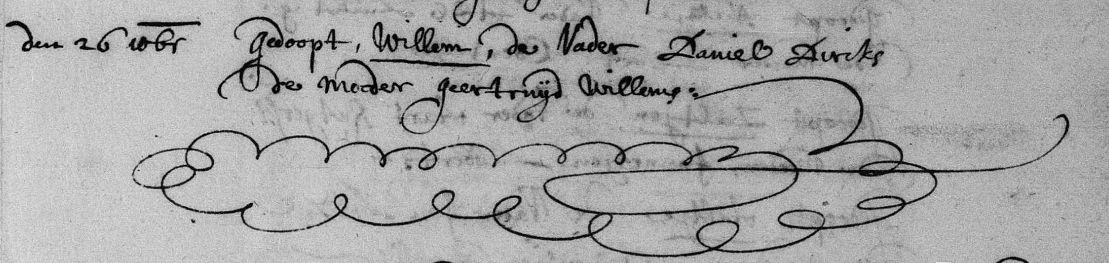 den 26 10br gedoopt, Willem, de Vader Daniel Dircks
de moeder geertruijd Willems: